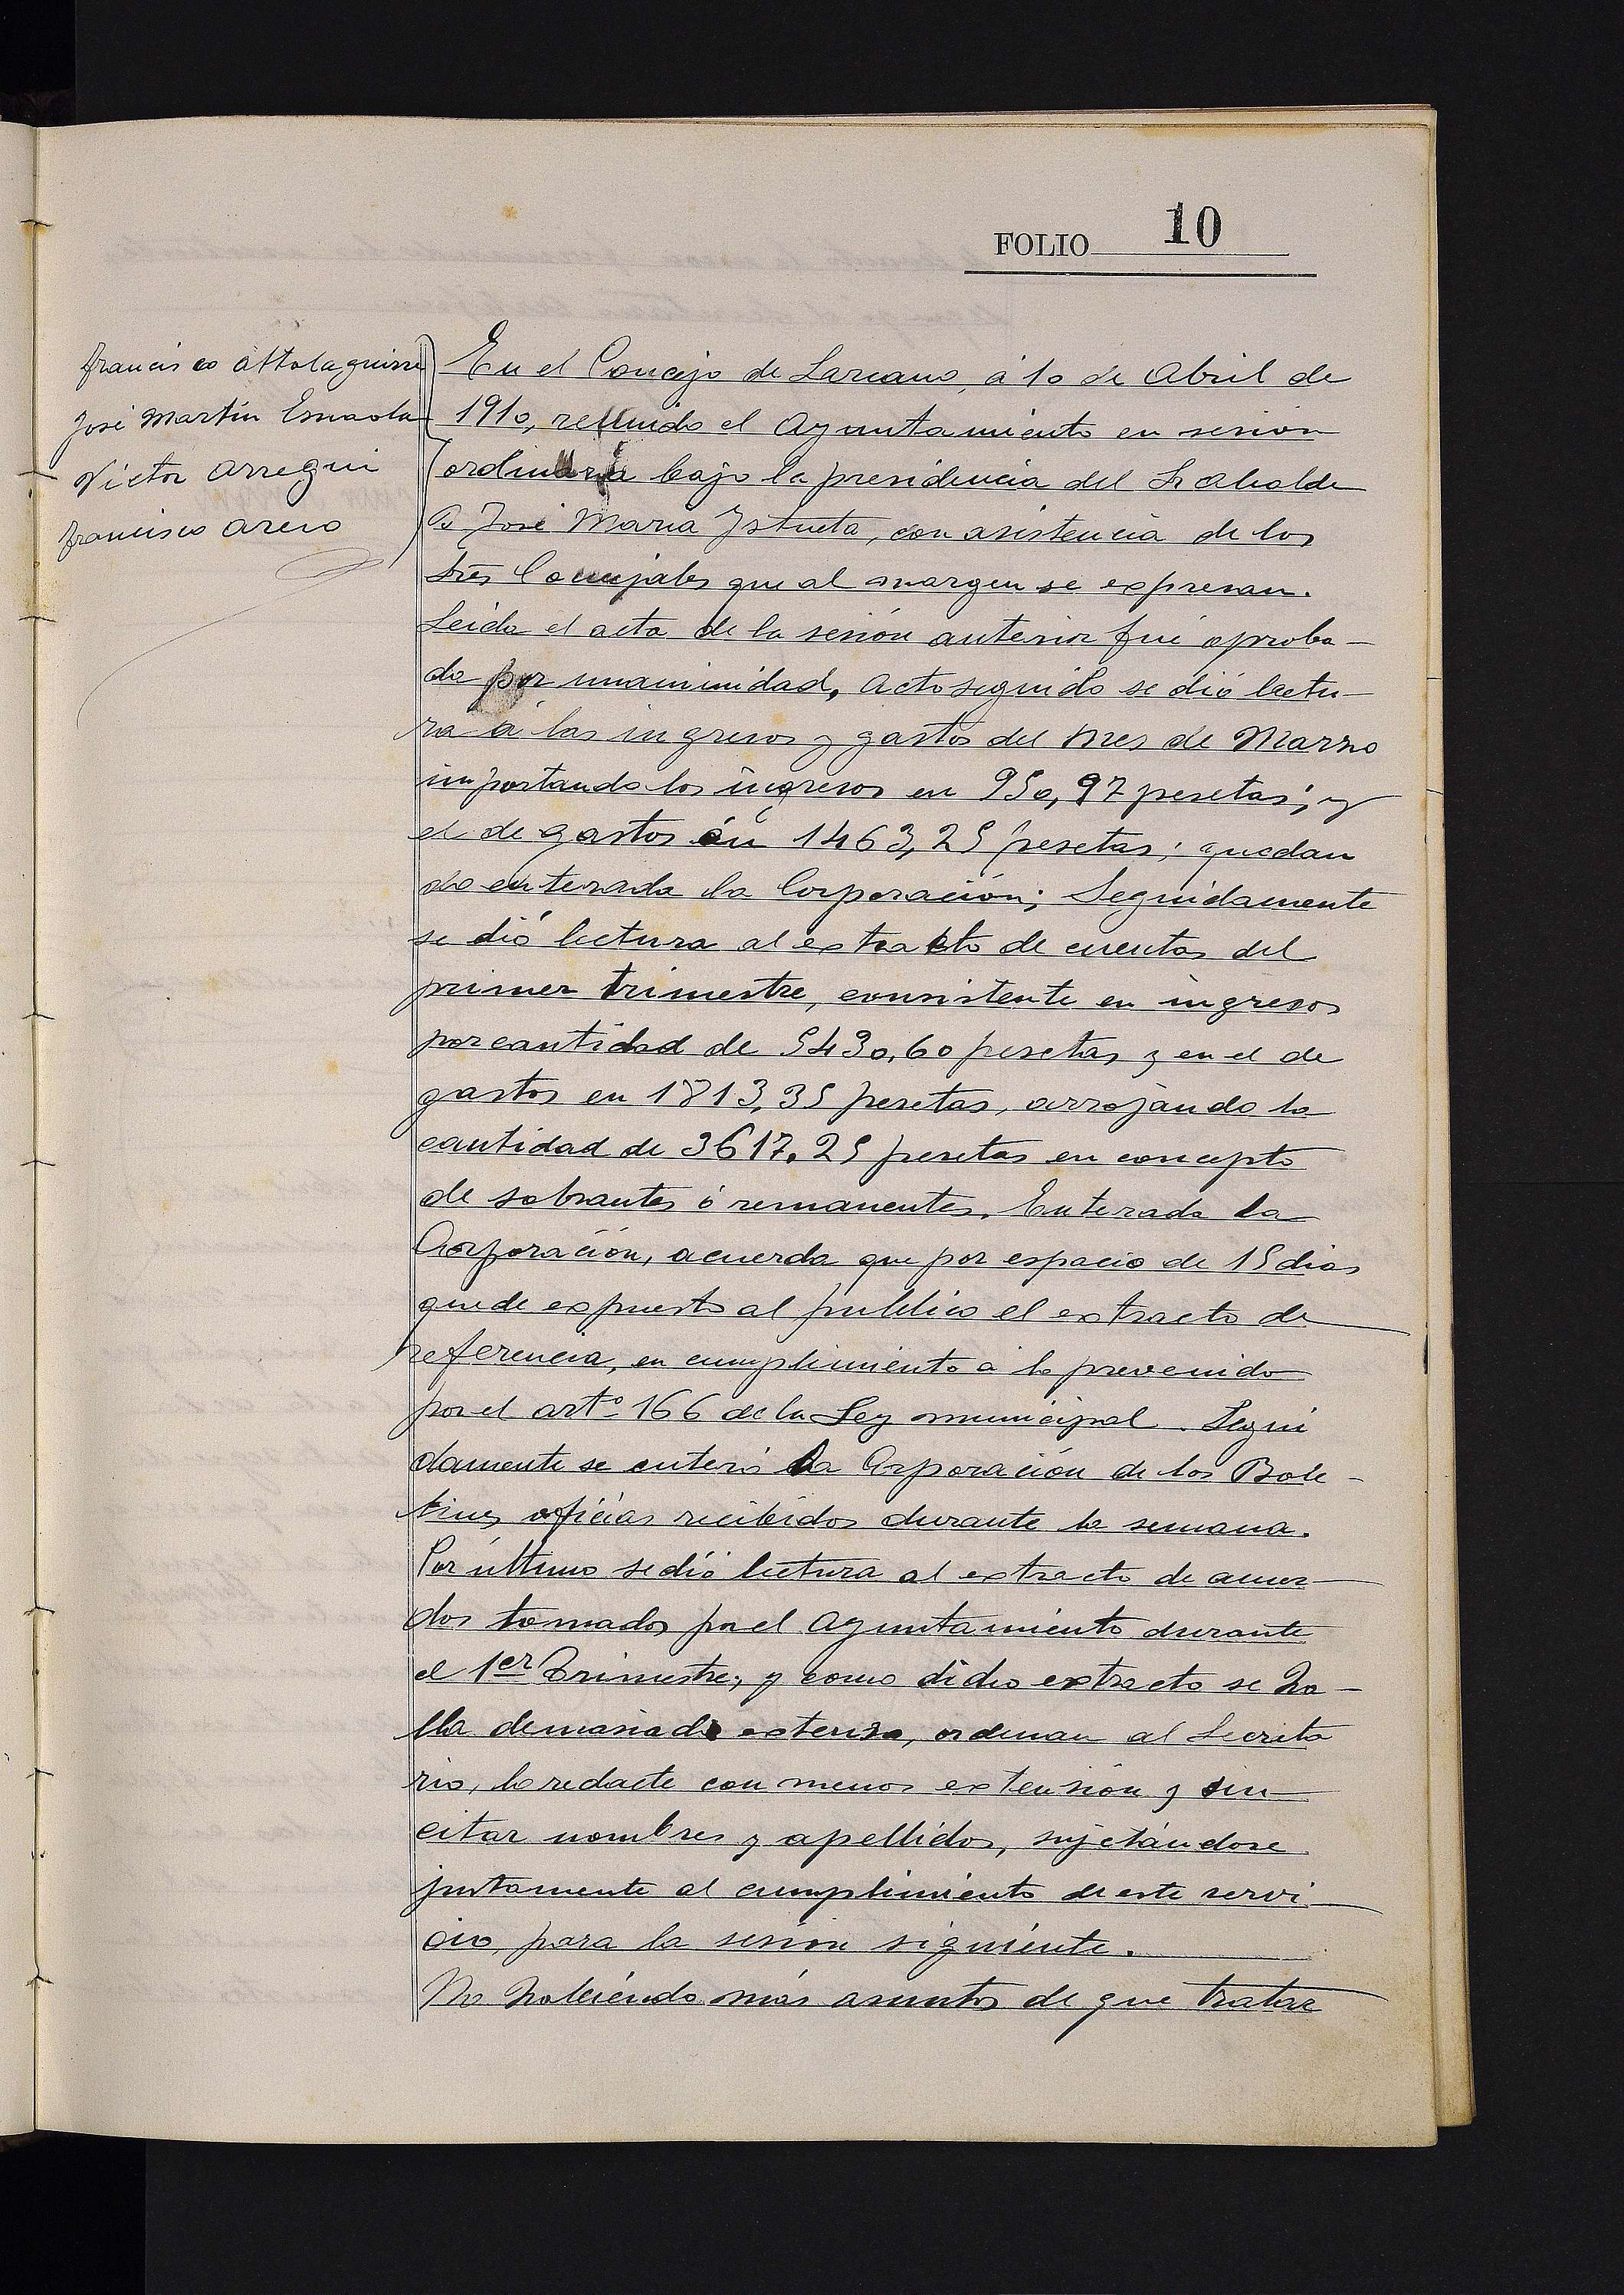 FOLIO 10
Francisco Altolaguirre
José Martín Esnaola
Víctor Arregui
Francisco
En el Concejo de Lazcano, á 10 de Abril de
1910, reunido el Ayuntamiento en sesión
ordinaria bajo la presidencia del Sr Alcalde
Dn José María Iztueta, con asistencia de los
Sres Concejales que al margen se expresan.
Leida el acta de la sesión anterior fué aproba-
da por unanimidad, Acto seguido se dió lectu-
ra á los ingresos y gastos del mes de Marzo
importando los ingresos en 950,97 pesetas; y
el de gastos en 1463,25 pesetas; quedan
do enterada la Corporación; Seguidamente
se dió lectura al extracto de cuentas del
primer trimestre, consistente en ingresos
por cantidad de 5430,60 pesetas y en el de
gastos en 1813,35 pesetas, arrojando la
cantidad de 3617,25 pesetas en concepto
de sobrantes ó remanentes. Enterada la
Corporación, acuerda que por espacio de 15 dias
quede expuesto al publico el extracto de
referencia, en cumplimiento á lo prevenido
por el artº 166 de la Ley municipal. Segui
damente se enteró la Corporación de los Bole-
tines oficias recibidos durante la semana.
Por último se dió lectura al extracto de acuer-
dos tomados por el Ayuntamiento durante
el 1er Trimestre, y como dicho extracto se ha-
lla demasiado extenso, ordenan al Secreta
rio, lo redacte con menos extensión y sin
citar nombres y apellidos, sujetándose
justamente al cumplimiento de este servi-
cio, para la sesión siguiente.
No habiendo más asuntos de que tratar